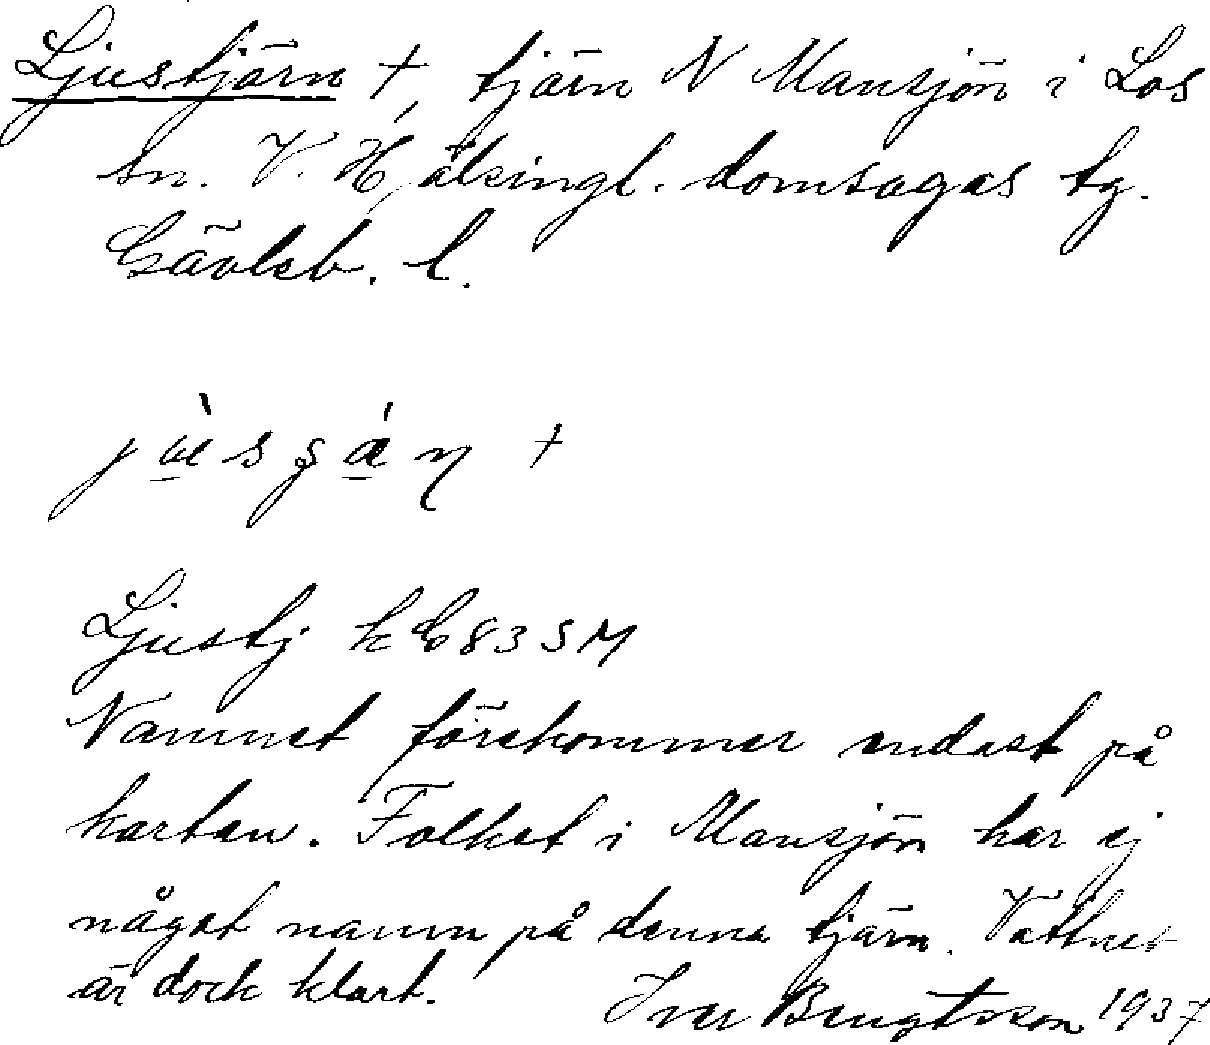 Ljustjärn +, tjärn N Mansjön i Los
sn. V. Hälsingl. domsagas tg.
Gävleb. l.
+
Ljustj kG83SM
Namnet förekommer endast på
kartan. Folket i Mansjön har ej
något namn på denna tjärn. Vattnet
är dock klart.
Iver Bengtsson 1937